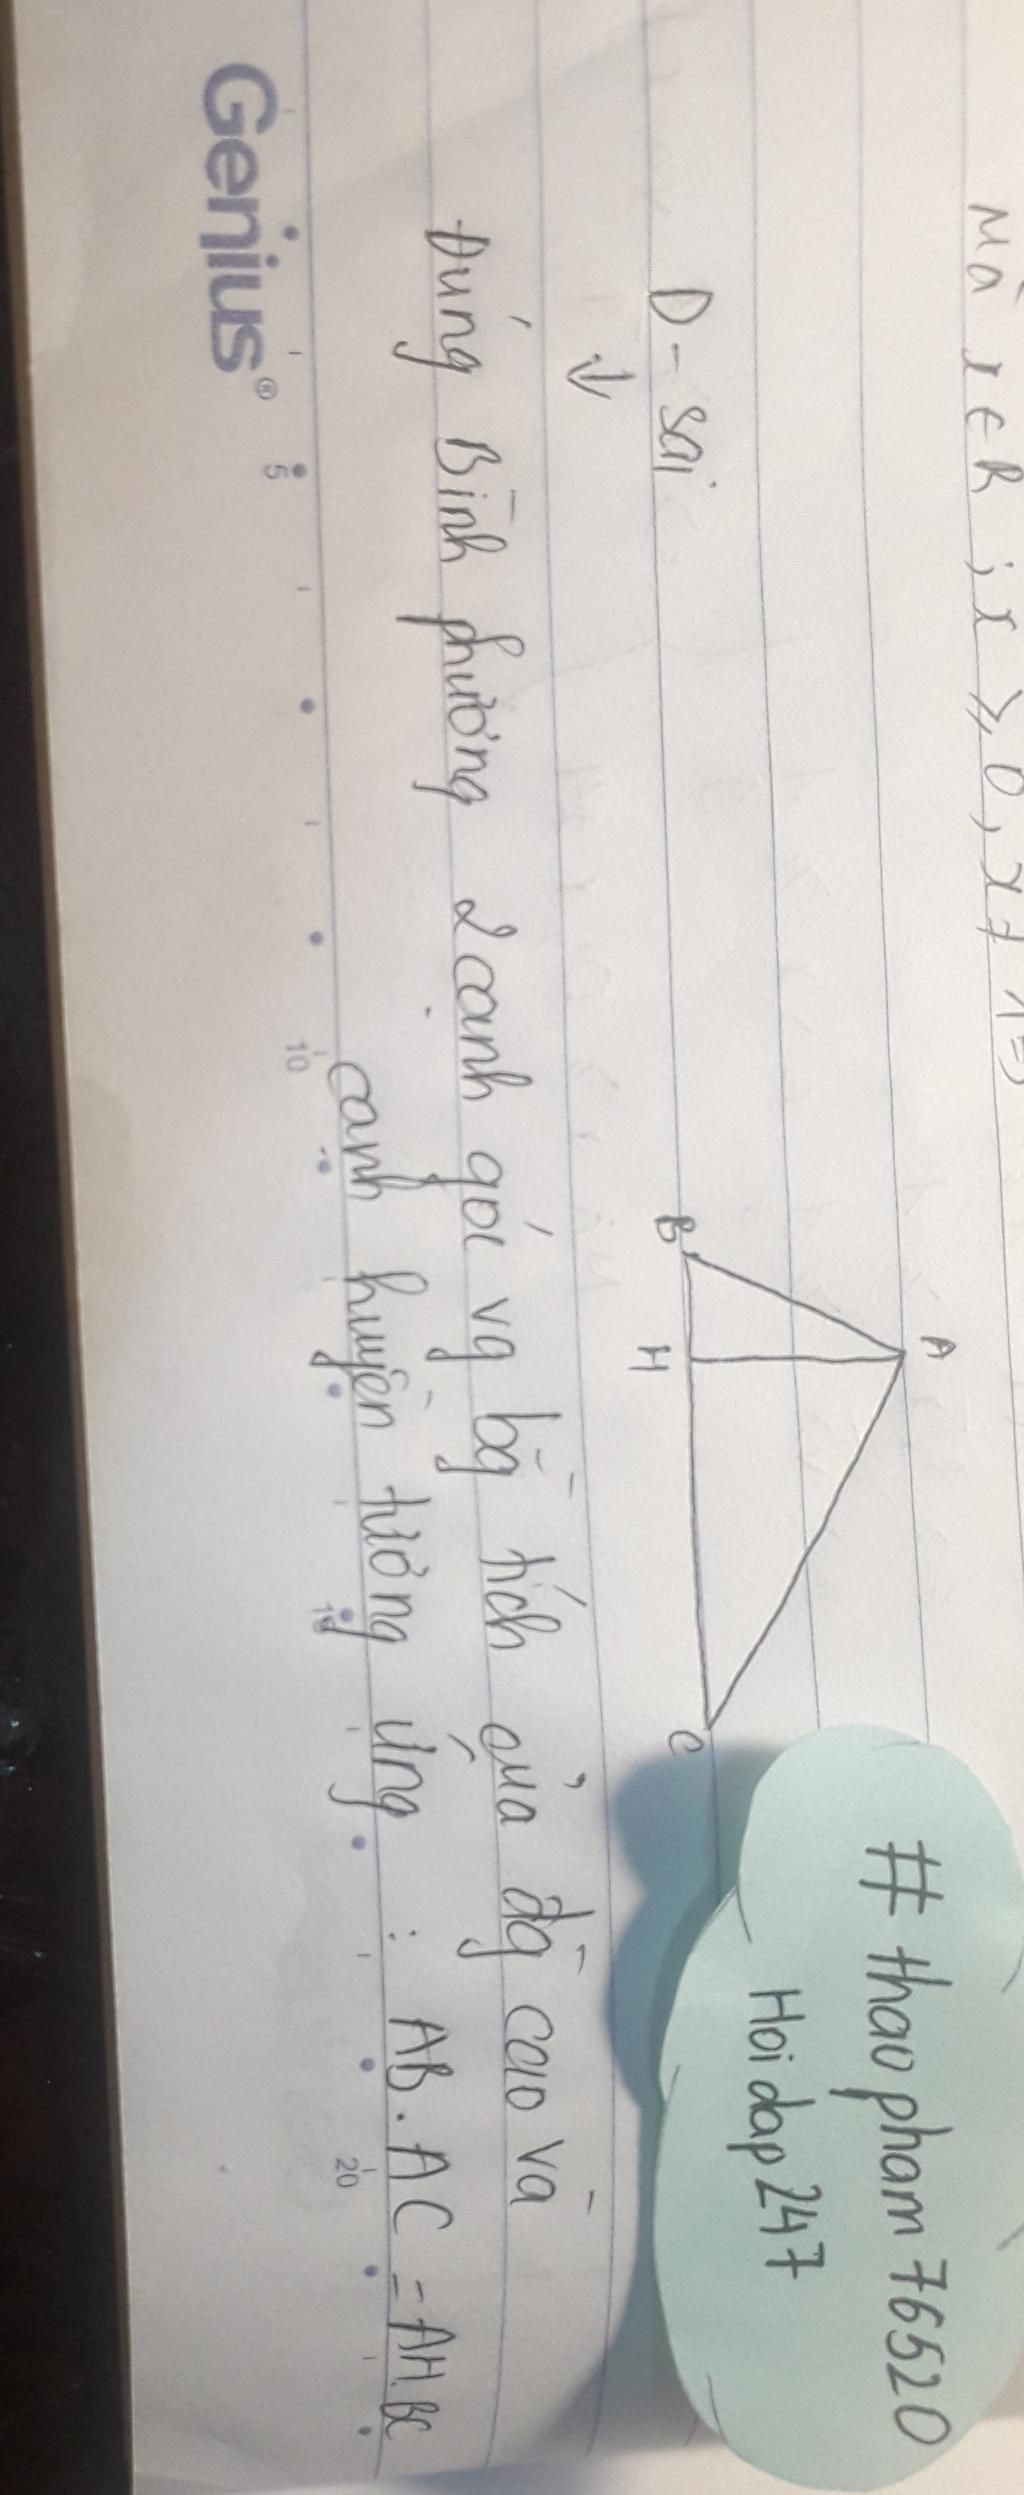 Mà x ∈ R ; x ≥ 0, x ≠ 1 =>
# thaopham76520
Hoidap247
A
D - sai
B
H
C
↓
Đúng Bình phương 2 cạnh góc vg bg̀ tích của đg̀ cao và
cạnh huyền tương ứng : AB.AC = AH.BC
5 10 15 20
Genius®